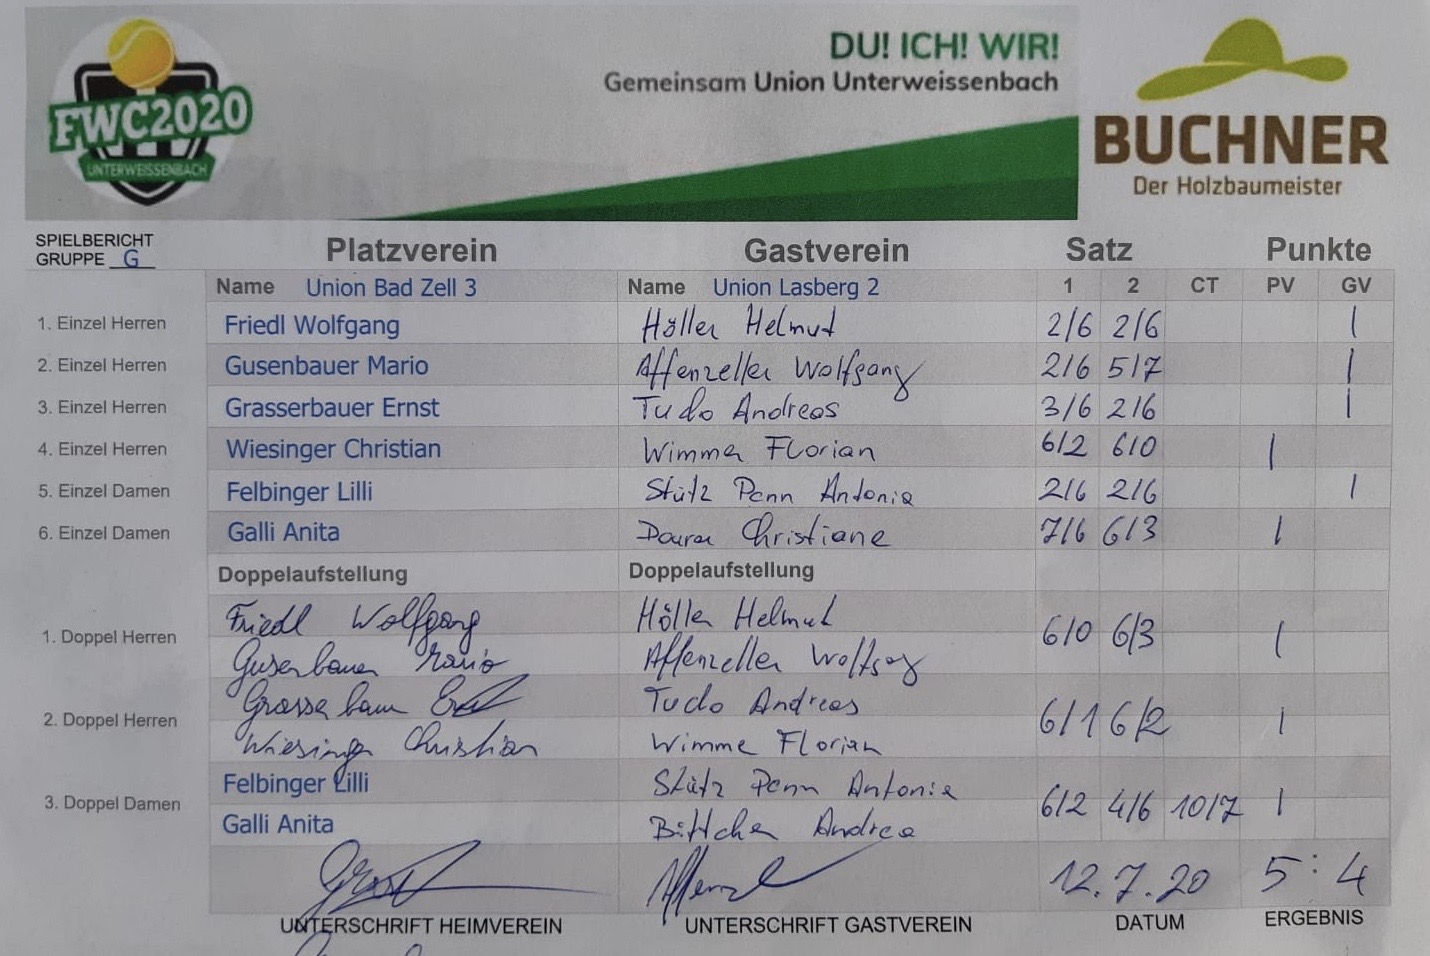 FWC2020
UNTERWEISSENBACH
DU! ICH! WIR!
Gemeinsam Union Unterweissenbach
BUCHNER
Der Holzbaumeister
SPIELBERICHT
GRUPPE G
Platzverein Gastverein Satz Punkte
Name Union Bad Zell 3 Name Union Lasberg 2 1 2 CT PV GV
1. Einzel Herren Friedl Wolfgang Höller Helmut 2/6 2/6 |
2. Einzel Herren Gusenbauer Mario Affenzeller Wolfgang 2/6 5/7 |
3. Einzel Herren Grasserbauer Ernst Tudo Andreas 3/6 2/6 |
4. Einzel Herren Wiesinger Christian Wimmer Florian 6/2 6/0 |
5. Einzel Damen Felbinger Lilli Stütz Penn Antonia 2/6 2/6 |
6. Einzel Damen Galli Anita Christiane 7/6 6/3 |
Doppelaufstellung Doppelaufstellung
1. Doppel Herren Friedl Wolfgang Höller Helmut 6/0 6/3 |
Gusenbauer Mario Affenzeller Wolfgang
2. Doppel Herren Grasserbauer Ernst Tudo Andreas 6/1 6/2 |
Wiesinger Christian Wimmer Florian
3. Doppel Damen Felbinger Lilli Stütz Penn Antonia 6/2 4/6 10/7 |
Galli Anita Böttcher Andrea
12.7.20 5:4
UNTERSCHRIFT HEIMVEREIN UNTERSCHRIFT GASTVEREIN DATUM ERGEBNIS